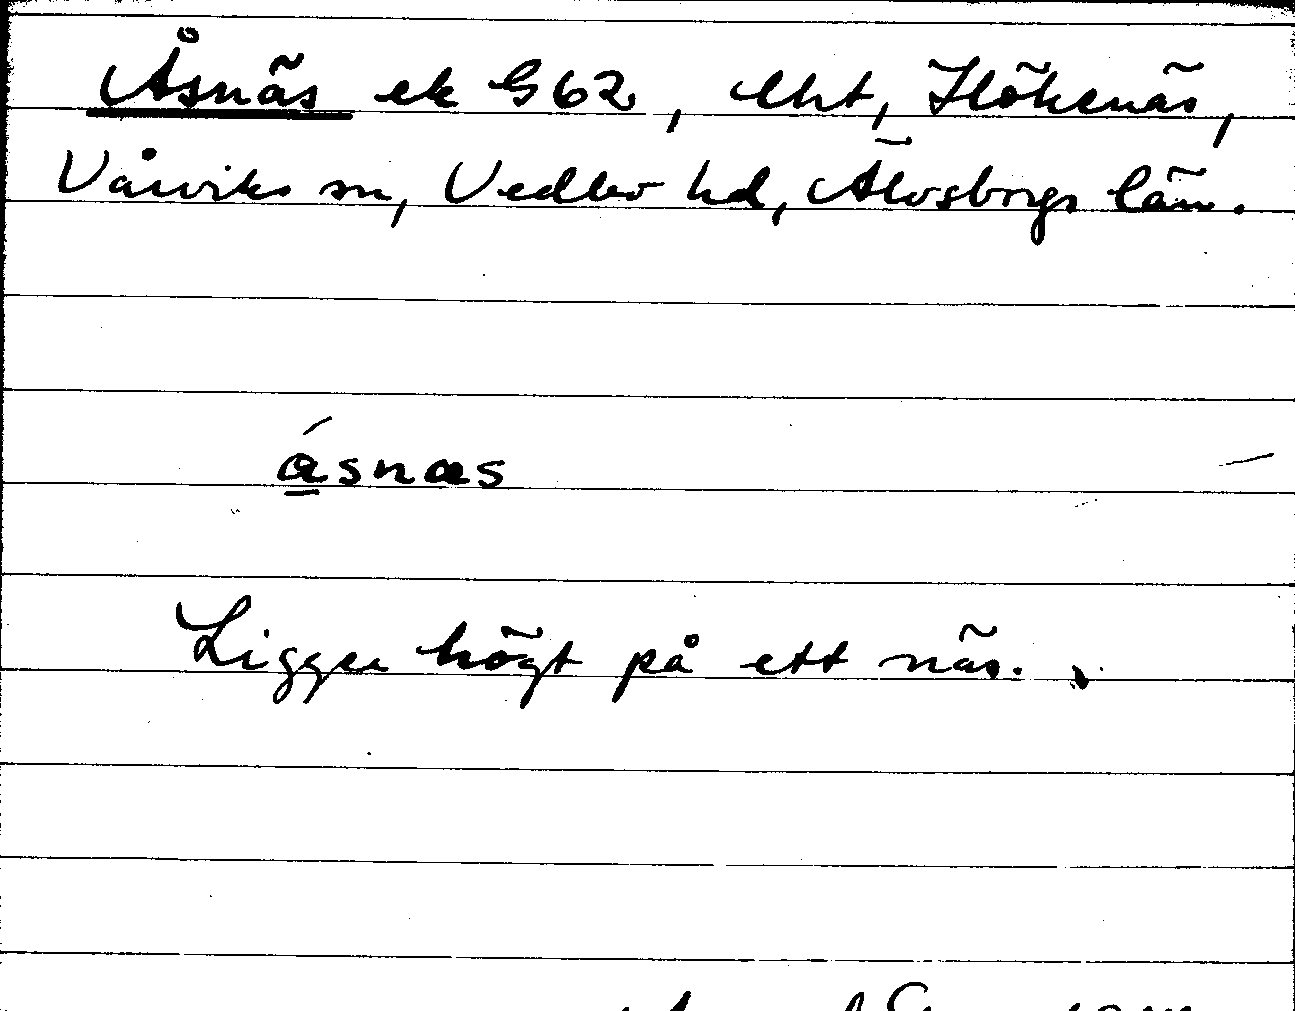 Åsnäs ek G62, lht, Hökenäs,
Vårviks sn, Vedbo hd, Älvsborgs län.
ásnæs
Ligger högt på ett näs.